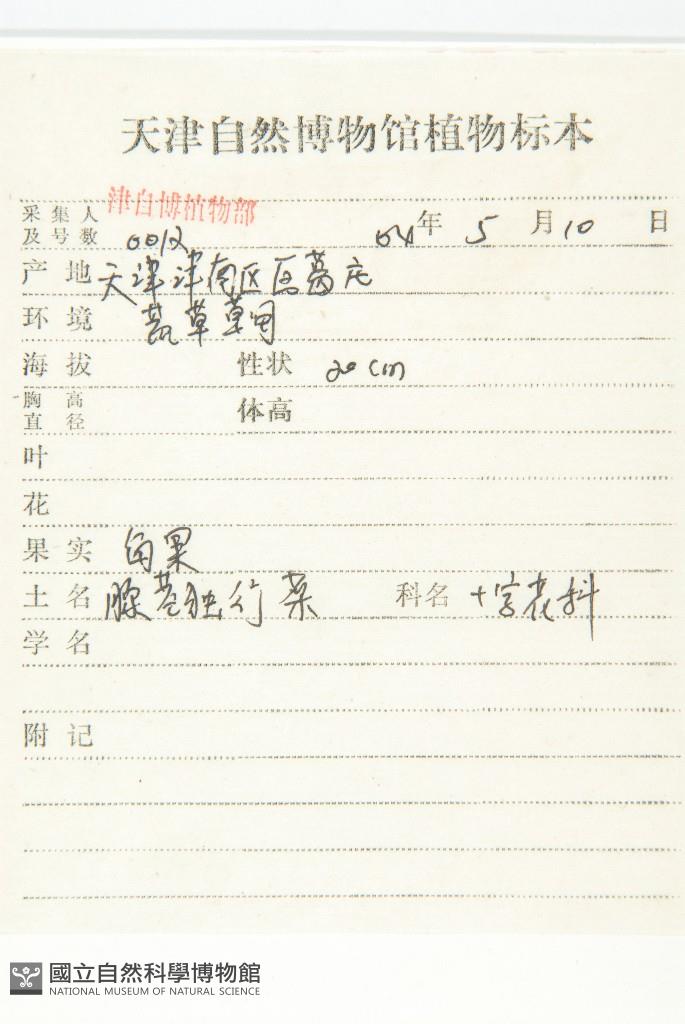 天津自然博物馆植物标本
采集人 津自博植物部
及号数 0012 04年 5 月 10 日
产地 天津津南区
环境
海拔 性状 20 cm
胸高 体高
直径
叶
花
果实 角果
土名 腺茎独行菜 科名 十字花科
学名
附记
國立自然科學博物館
NATIONAL MUSEUM OF NATURAL SCIENCE